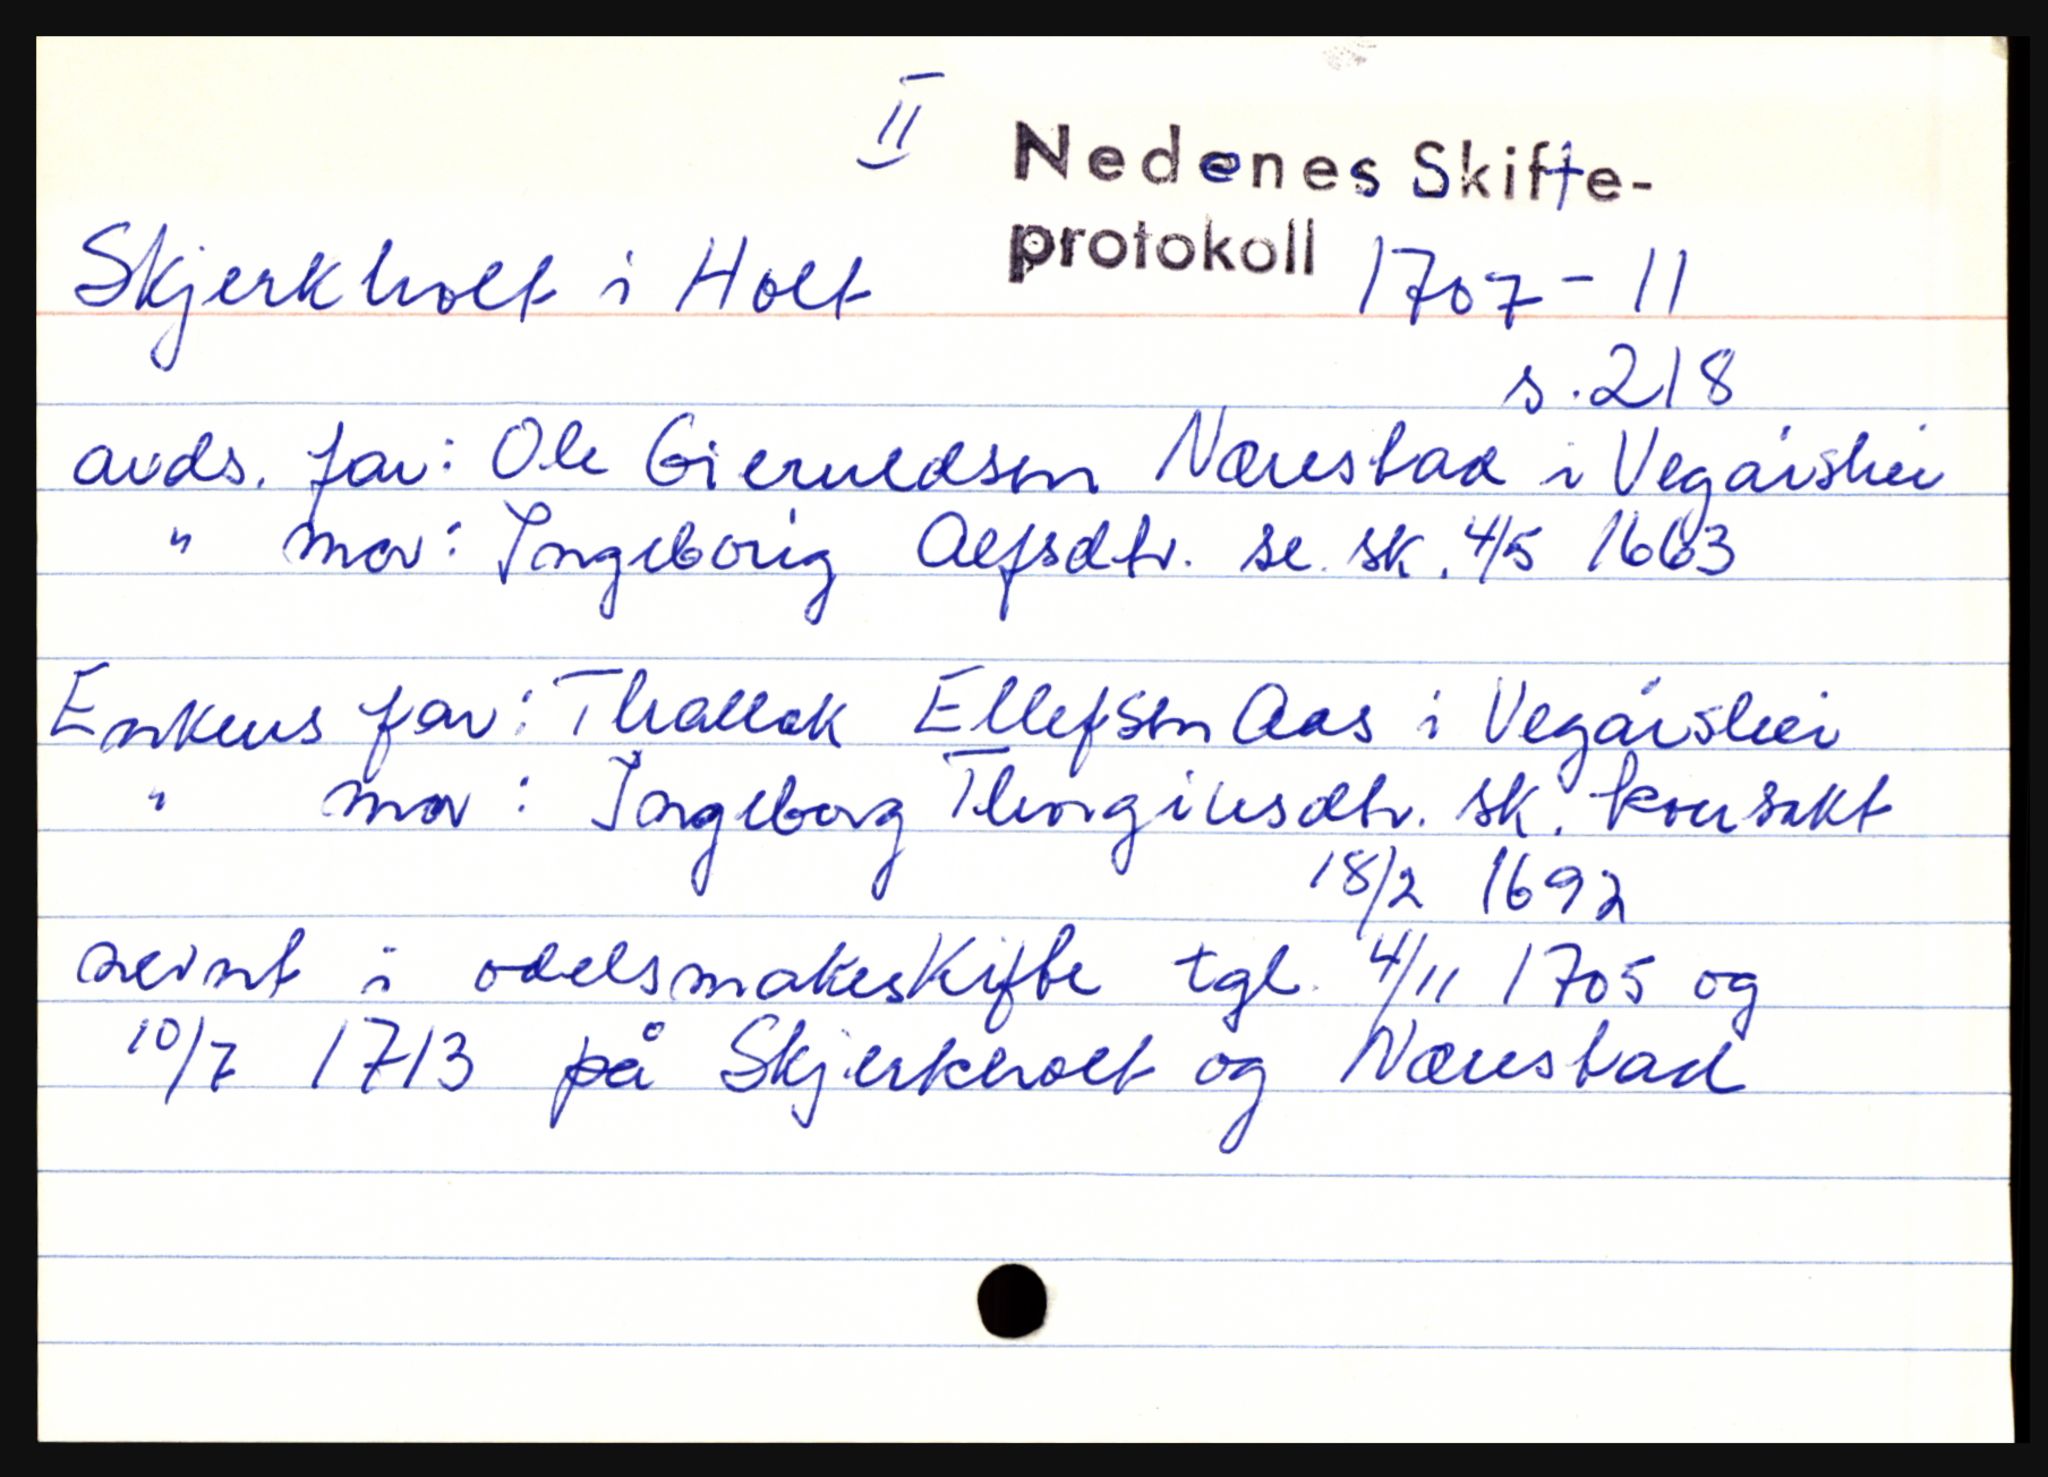 II
Nedenes Skifte-
protokoll 1707-11
Skjerkholt i Holt
s. 218
avds. far: Ole Gieruldsen Nærestad i Vegårshei
" mor: Ingeborig Alfsdtr. se sk. 4/5 1663
Enkens far: Thallak Ellefsen Aas i Vegårshei
" mor: Ingeborg Thorgilsdtr. sk.
18/2 1692
nevnt i odelsmakeskifte tgl. 4/11 1705 og
10/7 1713 på Skjerkholt og Nærestad